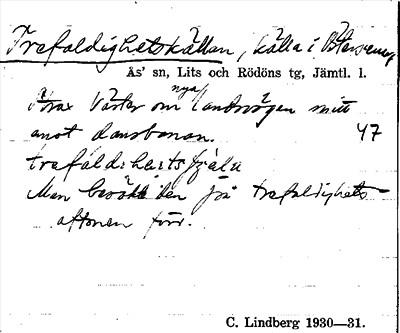 Trefaldighetskällan, källa i Östersunds
Ås' sn, Lits och Rödöns tg, Jämtl. l.
nya
Strax väster om landsvägen mitt
emot dansbanan. 47
trefaldiheitstjäln
Man besökte den på trefaldighets-
aftonen förr.
C. Lindberg 1930—31.